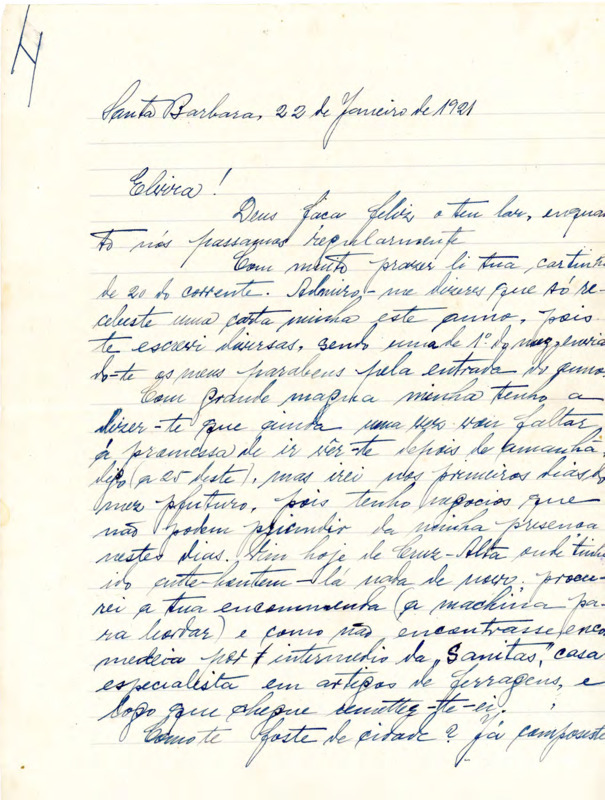 Santa Barbara, 22 de Janeiro de 1921
Elvira!
Deus faca feliz o teu lar, enquan
to nós passamos regularmente
Com muito prazer li tua cartinha
de 20 do corrente. Admiro-me dizeres que só re-
cebeste uma carta minha este anno, pois
te escrevi diversas, sendo uma de 1º do mez, envian
do-te os meus parabens pela entrada do anno.
Com grande magua minha tenho a
dizer-te que ainda uma vez vou faltar
á promessa de ir vêr-te depois de amanhã,
digo (a 25 deste), mas irei nos primeiros dias do
mez, pois tenho negocios que
não podem da minha presença
nestes dias. Vim hoje de Cruz-Alta onde tinha
ido ante-hontem - lá nada de novo; procu-
rei a tua encommenda (a machina pa-
ra bordar) e como não encontrasse enco
mendei por intermedio da „Sanitas", casa
especialista em artigos de ferragens, e
logo que chegue remetter-te-ei.
Como te foste de cidade? Já compuseste